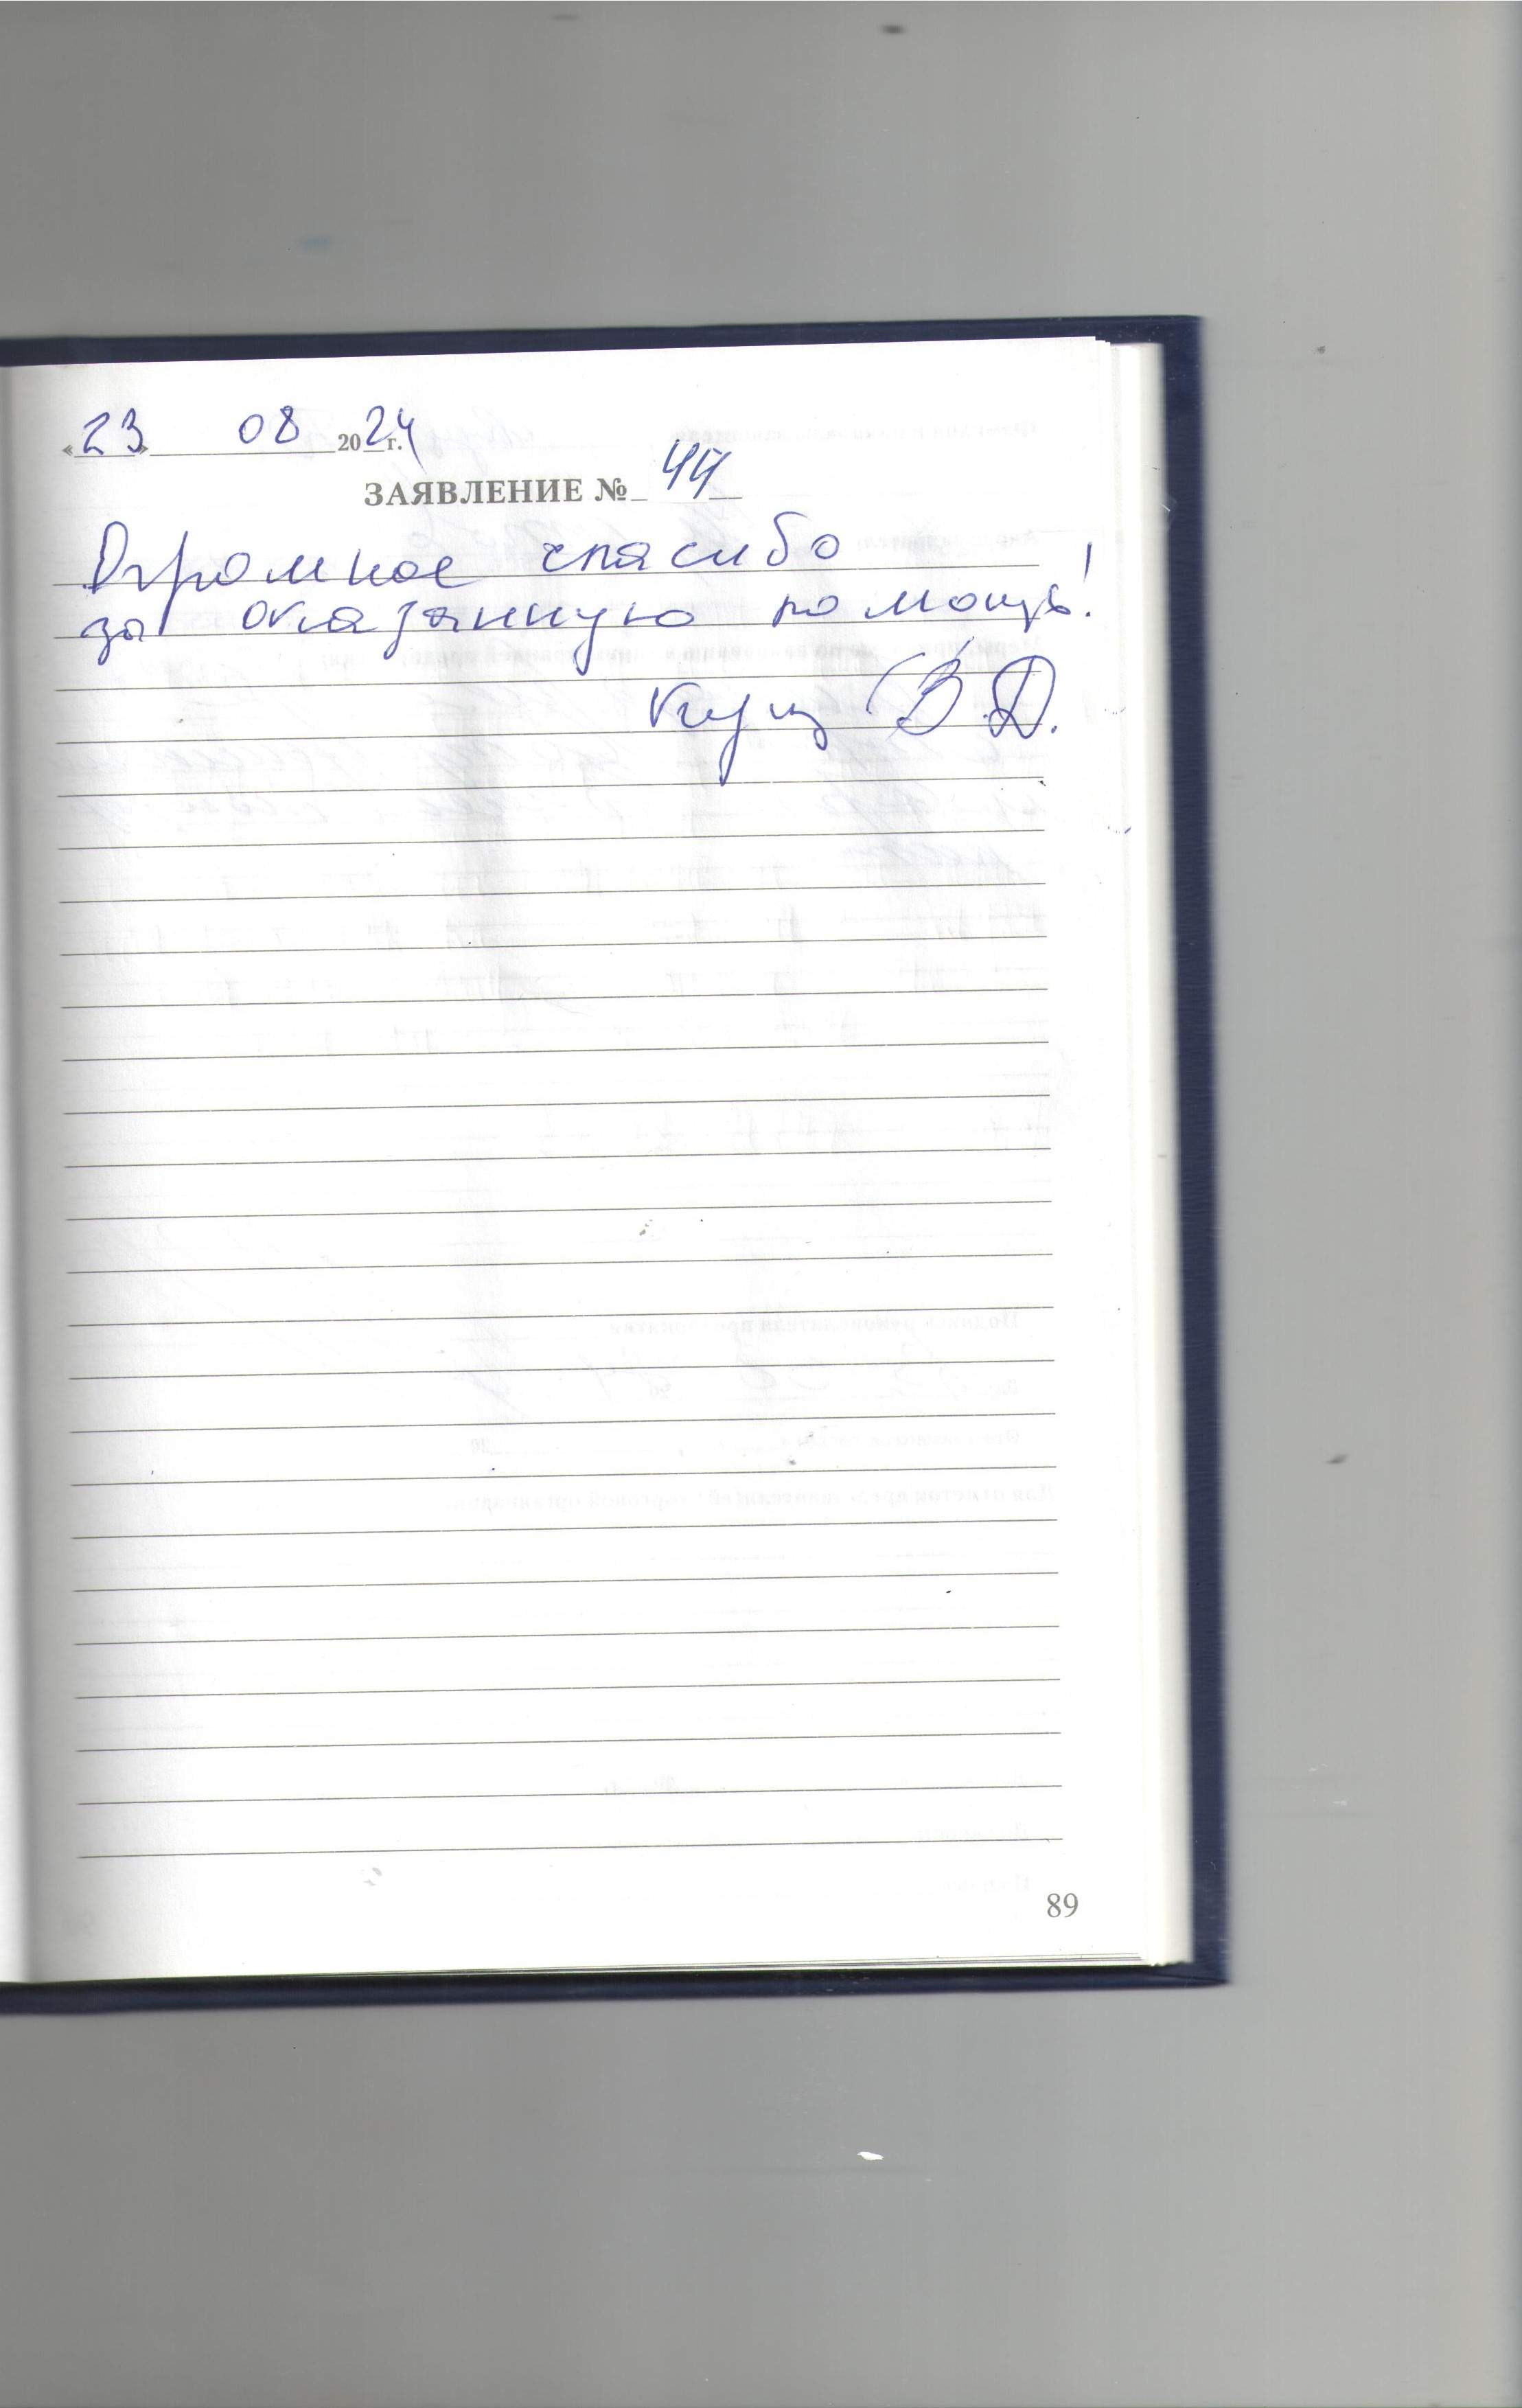 «23» 08 2024 г.
ЗАЯВЛЕНИЕ № 44
Огромное спасибо
за оказанную помощь!
Куц В.Д.
89